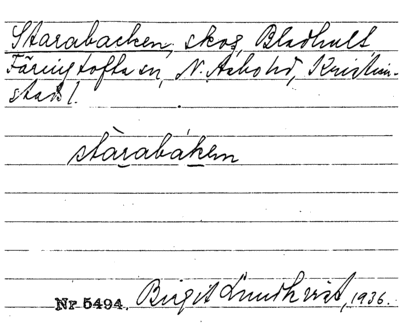 Starabacken, skog, Bladhult
Färingtofta sn, N. Åsbo hd, Kristian-
stads l.
stàrabáken
Nr 5494. Birgit Lundkvist, 1936.